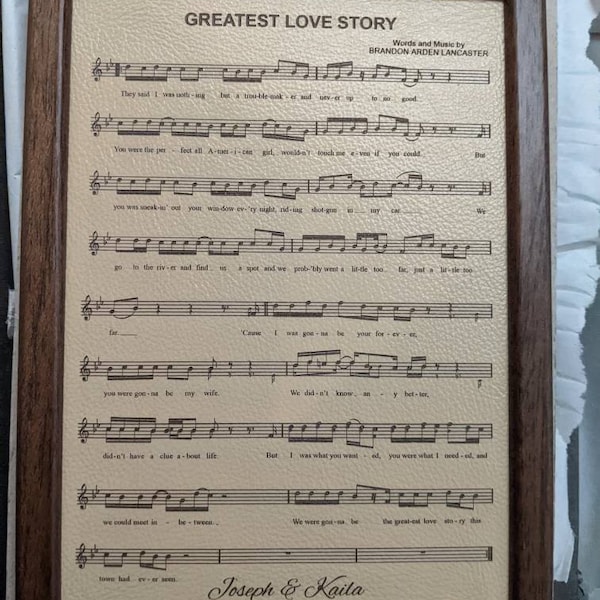 GREATEST LOVE STORY
Words and Music by
BRANDON ARDEN LANCASTER
They said I was noth - ing but a trou-ble-mak - er and nev-er up to no good.
You were the per - fect all A-mer-i-can girl, would-n't touch me e-ven if you could. But
you was sneak-in' out your win-dow ev-'ry night, rid-ing shot-gun in my car. We
go to the riv-er and find us a spot and we prob-'bly went a lit-tle too far, just a lit-tle too
far 'Cause I was gon-na be your for-ev-er,
you were gon-na be my wife. We did-n't know an-y bet-ter,
did-n't have a clue a-bout life. But I was what you want-ed, you were what I need-ed, and
we could meet in - be-tween. We were gon-na be the great-est love sto-ry this
town had ev-er seen.
Joseph & Kaila